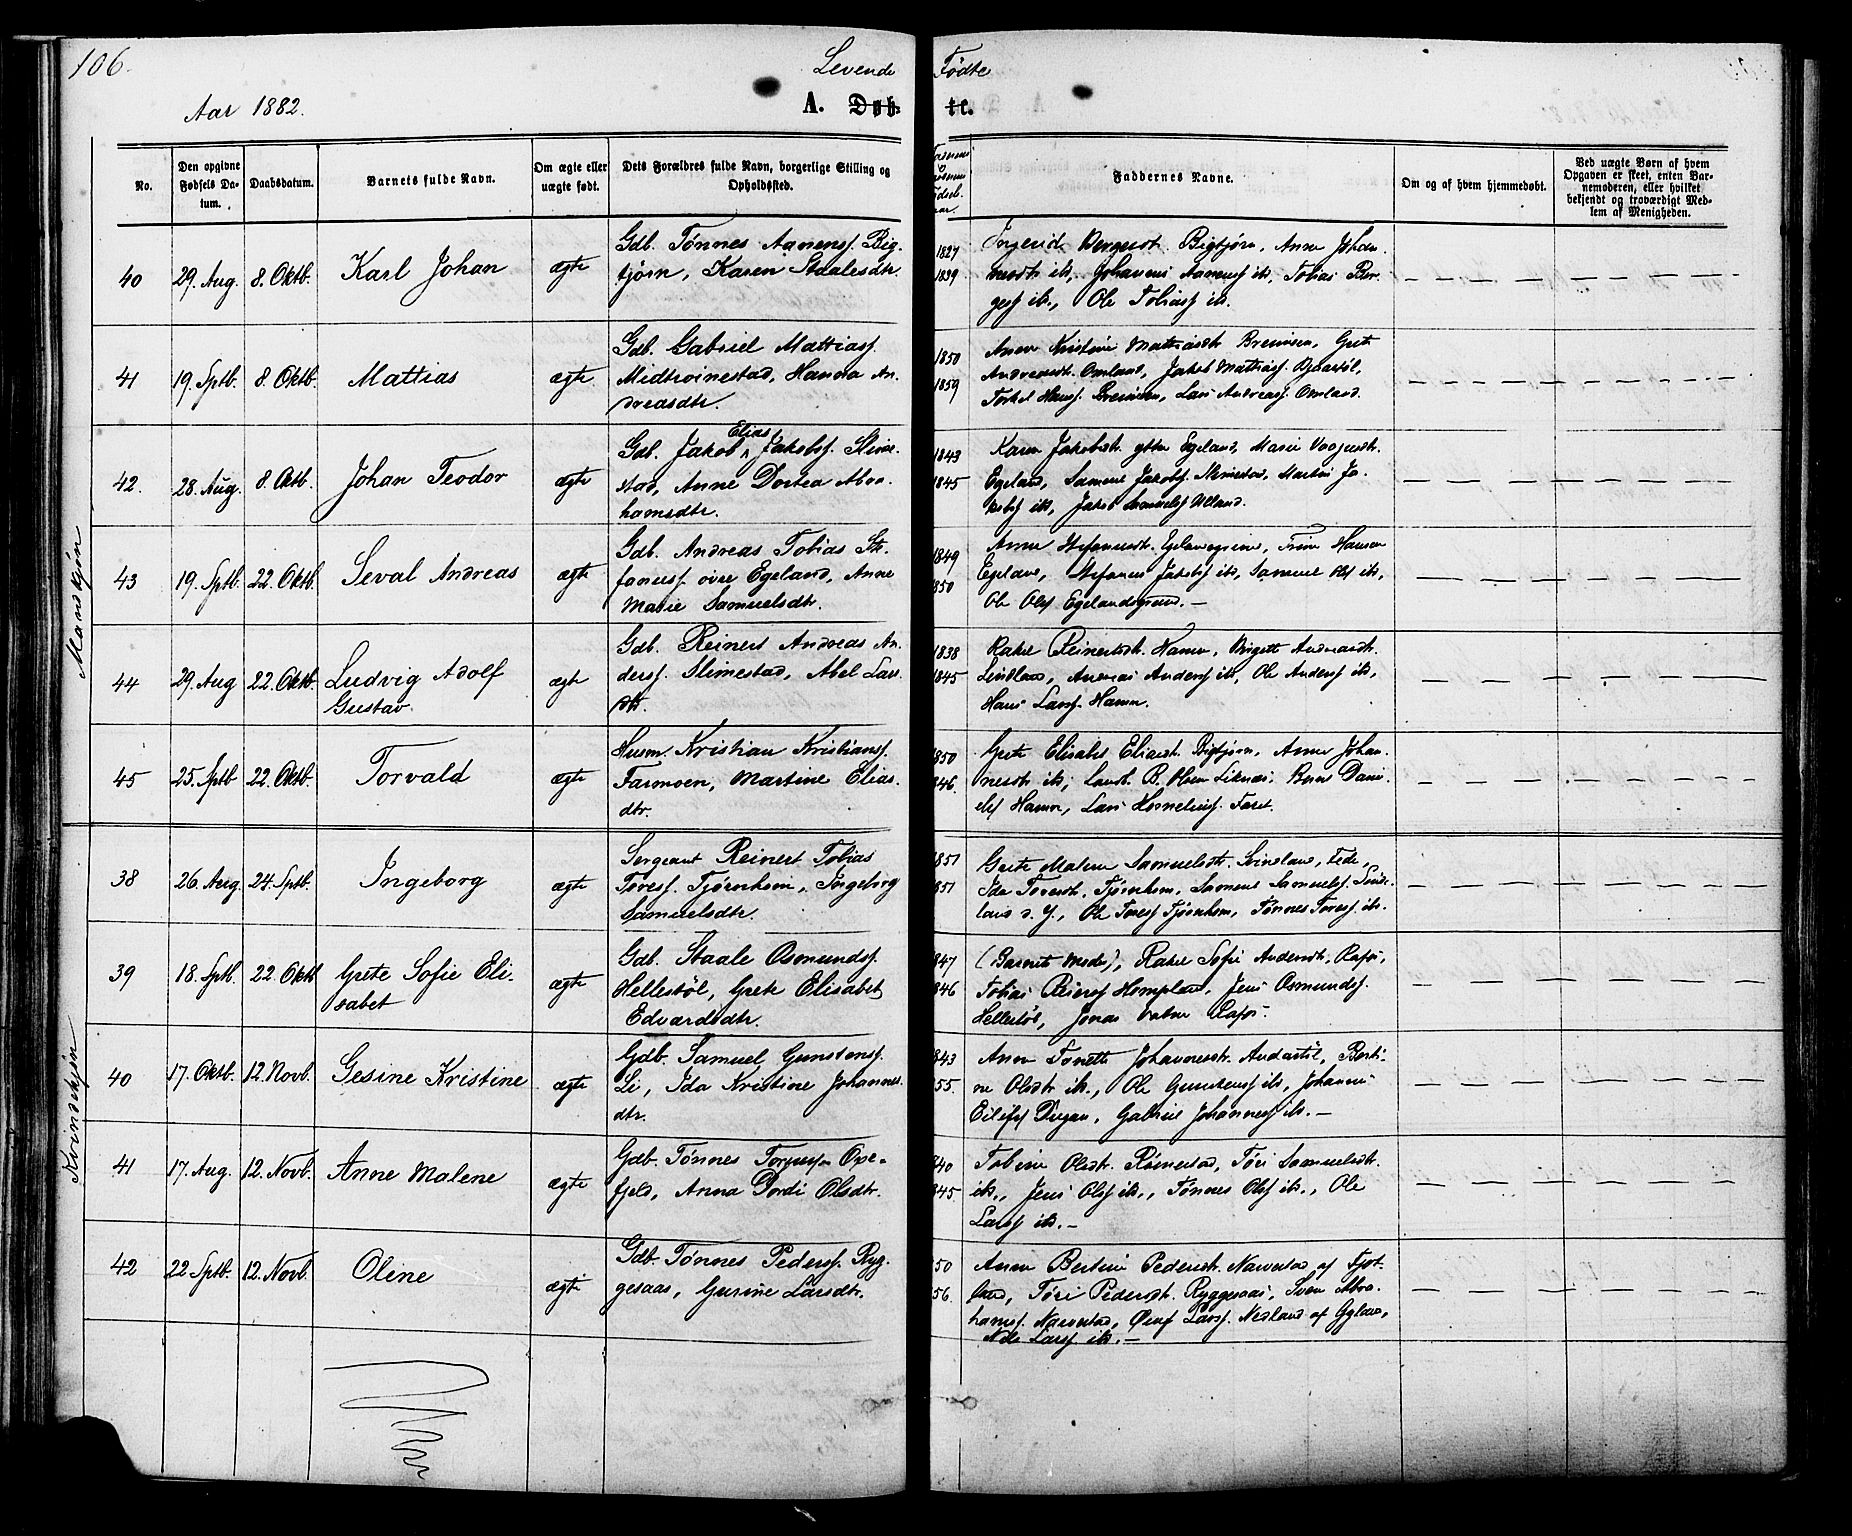 106.
Levende Fødte
Aar 1882.
A. Døbte.
No.
Den opgivne Fødsels Datum.
Daabsdatum.
Barnets fulde Navn.
Om ægte eller uægte født.
Dets Forældres fulde Navn, borgerlige Stilling og Opholdssted.
Faddernes Navne.
Om og af hvem hjemmedøbt.
Ved uægte Børn af hvem
Opgaven er skeet, enten Bar-
nemoderen, eller hvilket
bekjendt og troværdigt Med-
lem af Menigheden.
Mandkjøn
40 29. Aug. 8. Oktb. Karl Johan ægte
Gdb. Tønnes Aanensf. Big-
tjørn, Karen Staalesdtr.
1827
1839
Ingerid Bergesdt. Bigtjørn, Anne Johan-
nesdtr ib., Johannes Aanensf ib., Tobias Ber-
gesf ib., Ole Tobiasf ib.
41 19. Sptb. 8. Oktb. Mattias ægte
Gdb. Gabriel Mattiasf.
Midtvinestad, Hanna An-
dreasdtr.
1850
1859
Anne Kristine Mattiasdtr Brenisen, Grete
Andreasdt. Omland, Jakob Mattiasf.
Torkel Hansf. Lars Andreasf. Omland.
42. 28. Aug. 8. Oktb. Johan Teodor ægte
Gdb. Jakob Elias Jakobsf. Slime-
stad, Anne Dortea Abra-
hamsdtr.
1843
1845
Karen Jakobsdtr ytter Egeland, Marie
Egeland, Samuel Jakobsf. Slimestad, Martin Ja-
kobsf ib., Jakob Samuelsf Ulland.
43 19. Sptb. 22. Oktb. Seval Andreas ægte
Gdb. Andreas Tobias Ste-
fanusf. øvre Egeland, Anne
Marie Samuelsdtr.
1849
1850
Anne Stefanusdt. Egelandsgrind, Trine Hansen
Egeland, Stefanus Jakobsf ib., Samuel Olsf ib.,
Ole Olsf Egelandsgrind. —
44 29. Aug 22. Oktb. Ludvig Adolf
Gustav.
ægte
Gdb. Reinert Andreas An-
dersf. Slimestad, Abel Lars-
dtr.
1838
1845
Rakel Reinertsdt. Hamn, Birgitte Andreasdt.
Lindland, Andreas Andersf ib., Ole Andersf ib.,
Hans Larsf. Hamn.
45 25. Sptb 22. Oktb. Torvald ægte
Husm. Kristian Kristiansf.
Farmoen, Martine Elias-
dtr.
1850
846.
Grete Elisabet Eliasdt. Bigtjørn, Anne Johan-
nesdt ib., B. Olsen Liknes, Dani-
elsf Hamn, Lars Kornelius. Faret.
Kvindekjøn
38 26. Aug. 24. Sptb. Ingeborg ægte
Sergeant Reinert Tobias
Toresf. Tjørnhom, Ingeborg
Samuelsdtr.
1851
1851
Grete Malene Samuelsdt. Svindland, Fede,
Ida Toresdt. Tjørnhom, Samuel Samuelsf. Svind-
land d. y., Ole Toresf Tjørnhom, Tønnes Toresf. ib.
39 18. Sptb. 22. Oktb Grete Sofie Eli-
sabet
ægte
Gdb. Staale Osmundsf.
Hellestøl, Grete Elisabet
Edvardsdtr.
847
846
(Barnets Moder), Rakel Sofie Andersdt. Rafos,
Tobias Reiersf Hompland, Jens Osmundsf.
Hellestøl, Jonas Vatne Rafos.
40 17. Oktb. 12. Novb. Gesine Kristine ægte
Gdb. Samuel Gunstensf.
Li, Ida Kristine Johannes-
dtr.
843
855.
Anne Tonette Johannesdt. Berti-
ne Olsdtr ib., Ole Gunstensf ib., Johannes
Eilefsf Dugan, Gabriel Johannesf ib. —
41 17. Aug. 12. Novb. Anne Malene ægte
Gdb. Tønnes Torjusf Ope-
fjeld, Anna Dordi Olsdtr.
840
845.
Tobine Olsdt. Røinestad, Tøri Samuelsdt.
ib., Jens Olsf ib., Tønnes Olsf ib., Ole
Larsf ib. —
42 22 Sptb. 12. Novb. Oline ægte
Gdb. Tønnes Pedersf. Ryg-
gesaas, Gurine Larsdtr.
50
56.
Anne Bertine Pedersdt. Narvestad af Fjot-
land, Tøri Pedersdt. Ryggesaas, Sven Abra-
hamsf. Narvestad, Øiulf Larsf. Nesland af Gyland,
Nils Larsf ib. —